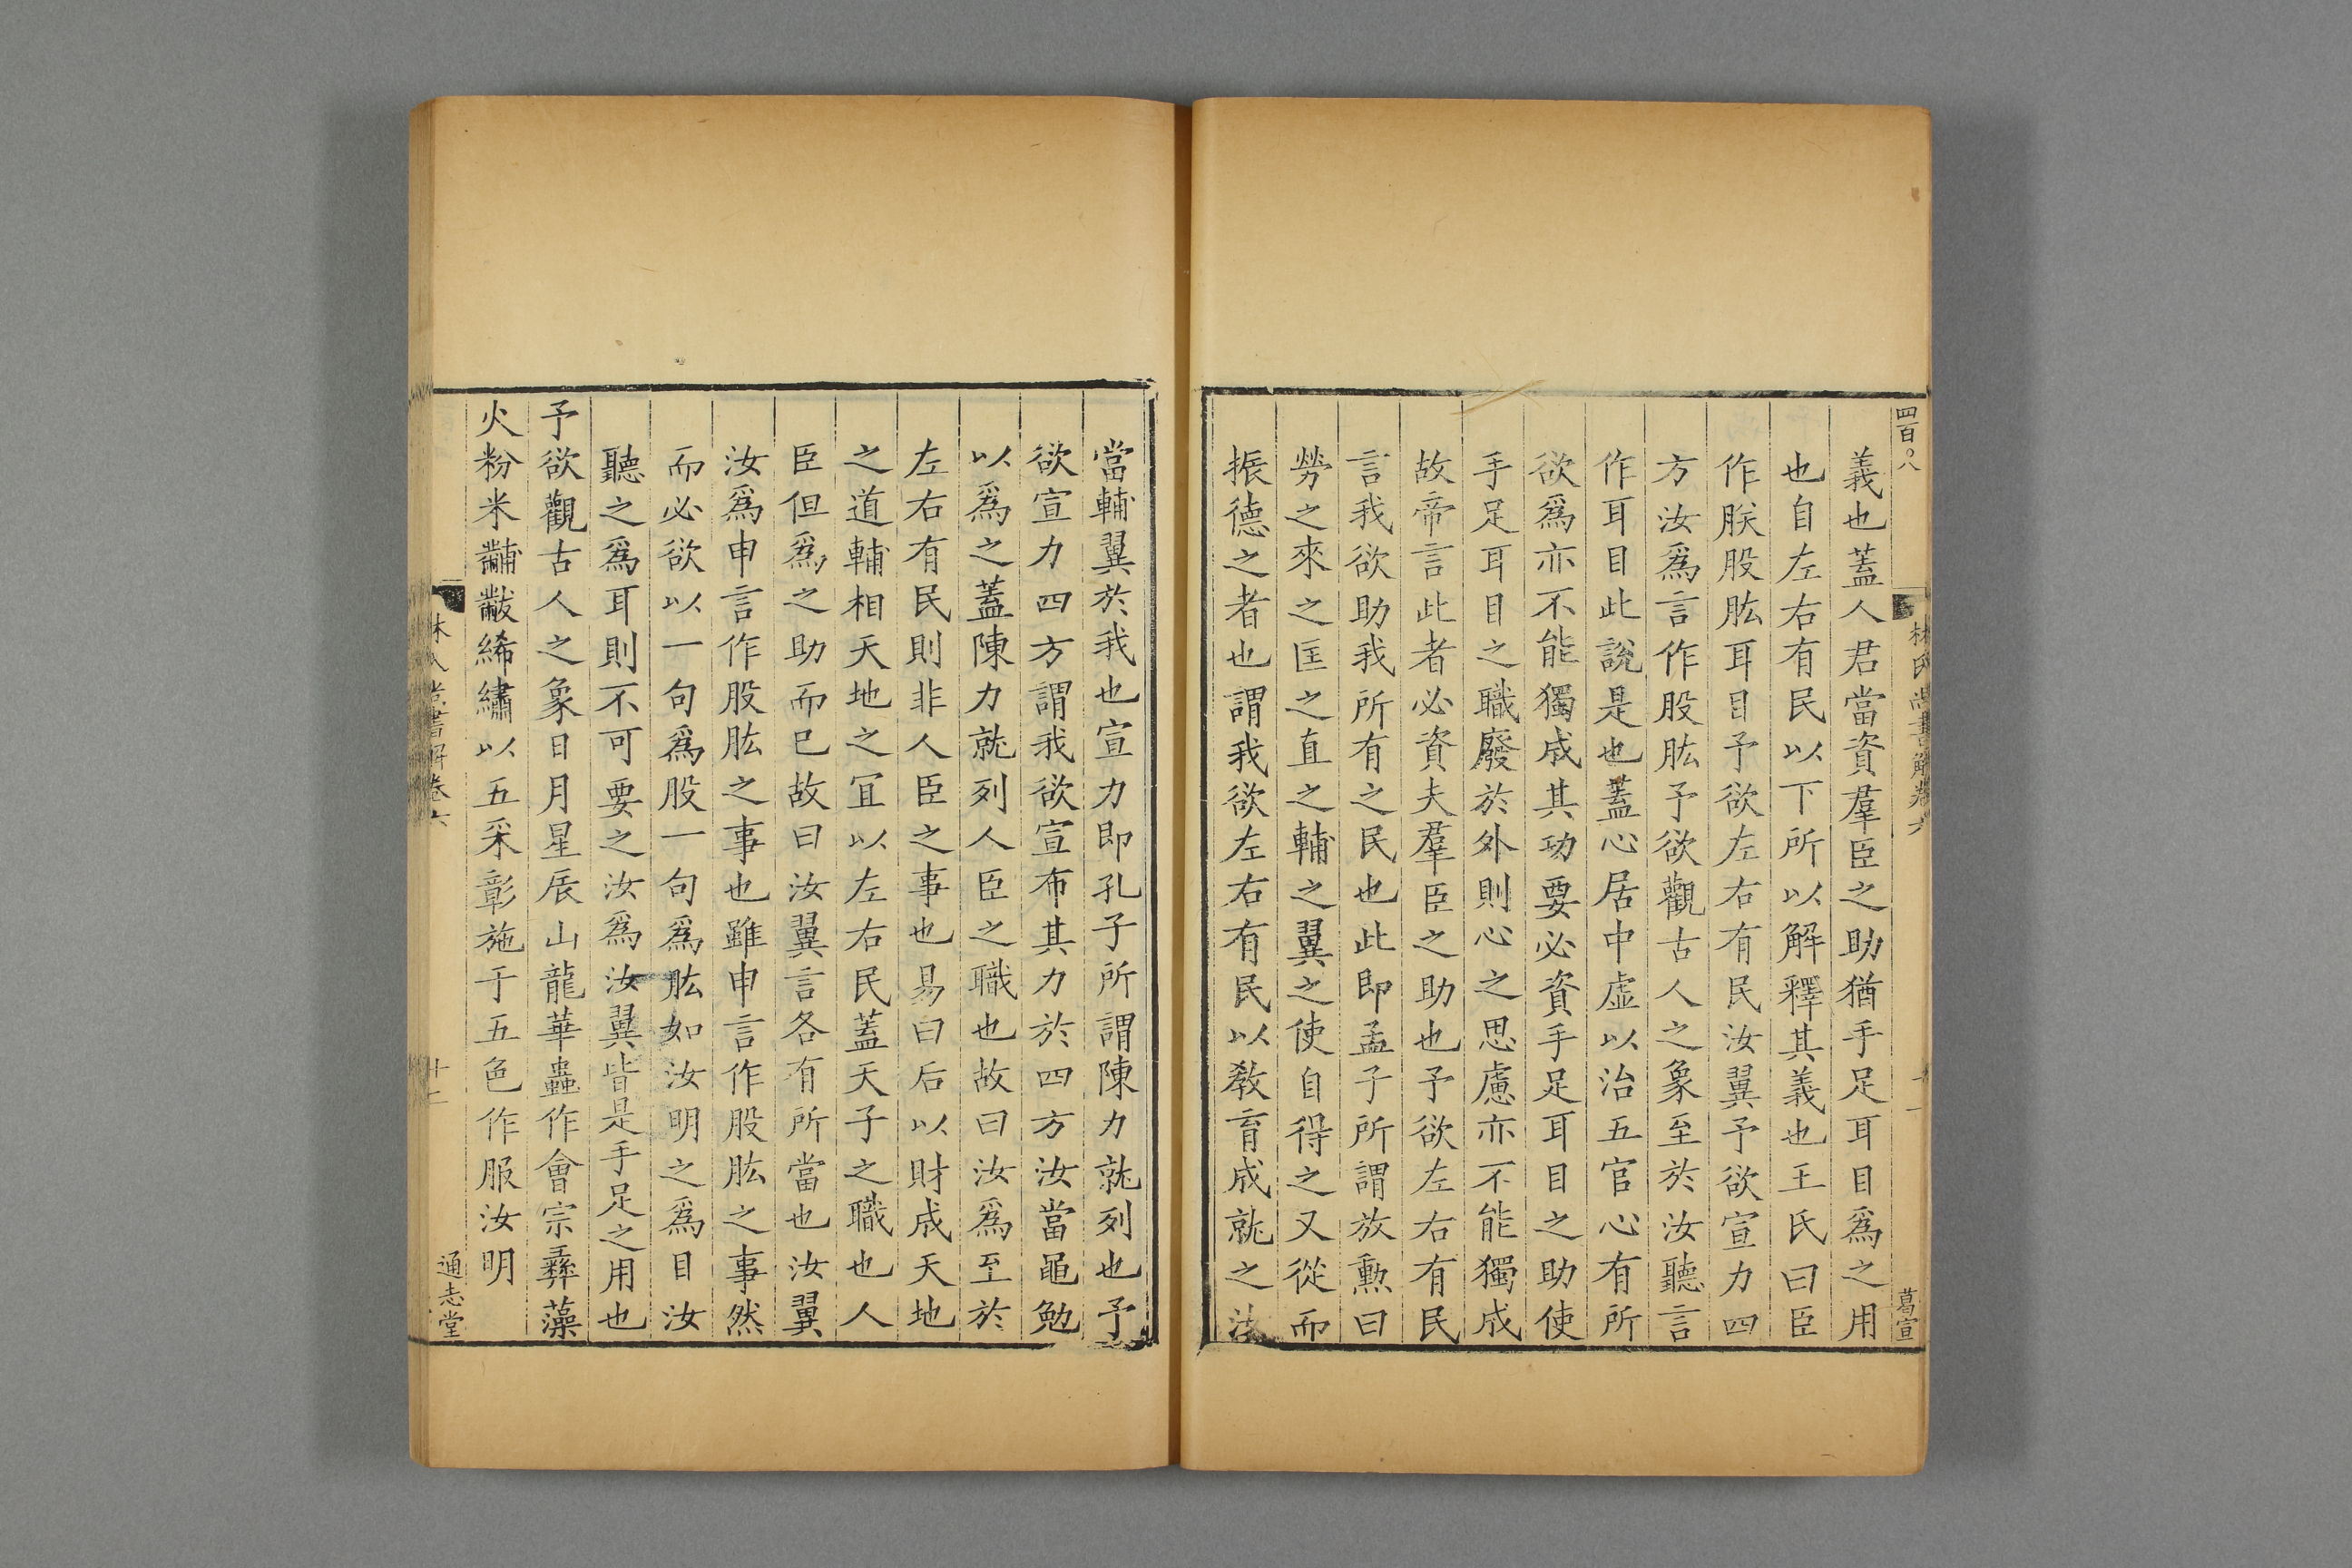 四百〇八
林氏尚書解卷六
葛宣
義也蓋人君當資羣臣之助猶手足耳目爲之用
也自左右有民以下所以解釋其義也王氏曰臣
作朕股肱耳目予欲左右有民汝翼予欲宣力四
方汝爲言作股肱予欲觀古人之象至於汝聽言
作耳目此說是也蓋心居中虛以治五官心有所
欲爲亦不能獨成其功要必資手足耳目之助使
手足耳目之職廢於外則心之思慮亦不能獨成
故帝言此者必資夫羣臣之助也予欲左右有民
言我欲助我所有之民也此即孟子所謂放勲曰
勞之來之匡之直之輔之翼之使自得之又從而
振德之者也謂我欲左右有民以敎育成就之汝
當輔翼於我也宣力即孔子所謂陳力就列也予
欲宣力四方謂我欲宣布其力於四方汝當黽勉
以爲之蓋陳力就列人臣之職也故曰汝爲至於
左右有民則非人臣之事也易曰后以財成天地
之道輔相天地之宜以左右民蓋天子之職也人
臣但爲之助而已故曰汝翼言各有所當也汝翼
汝爲申言作股肱之事也雖申言作股肱之事然
而必欲以一句爲股一句爲肱如汝明之爲目汝
聽之爲耳則不可要之汝爲汝翼皆是手足之用也
予欲觀古人之象日月星辰山龍華蟲作會宗彝藻
火粉米黼黻絺繡以五采彰施于五色作服汝明
書解卷六
十二
通志堂